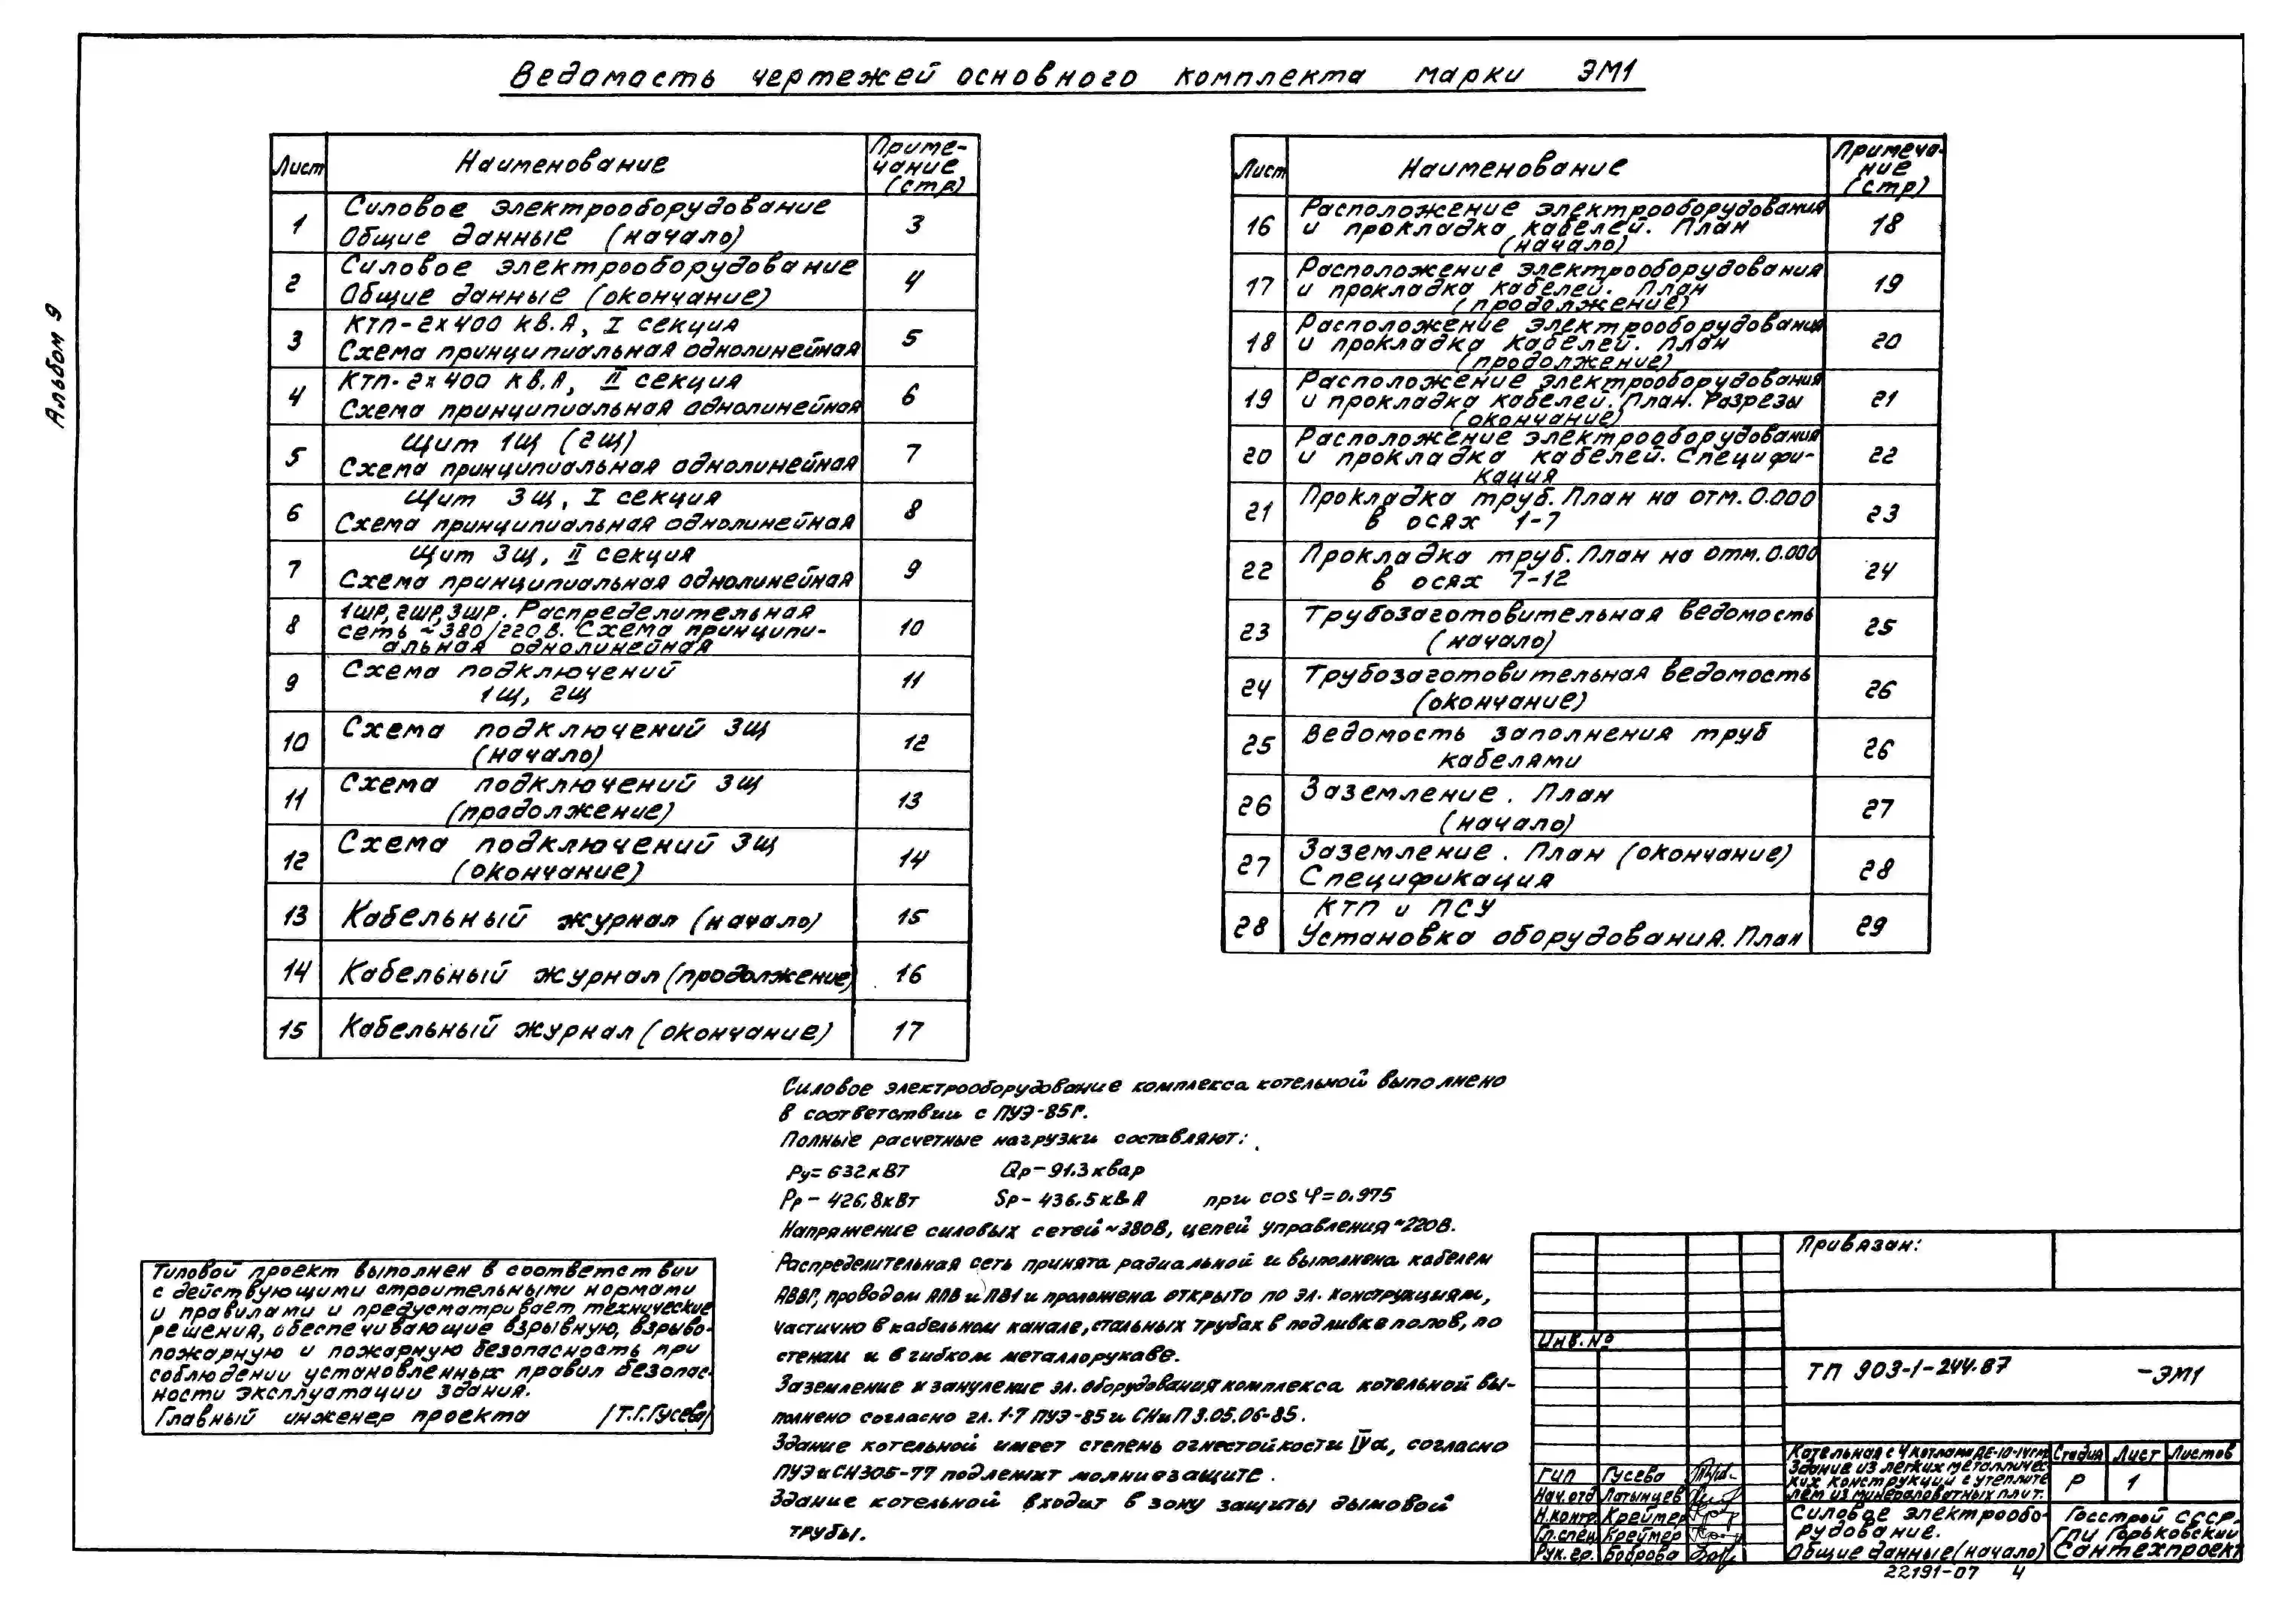 Альбом 9
Ведомость чертежей основного комплекта марки ЭМ1
Лист
Наименование
Приме-
чание
(стр)
1
Силовое электрооборудование
Общие данные (начало)
3
2
Силовое электрооборудование
Общие данные (окончание)
4
3
КТП-2х400 кв.А, I секция
Схема принципиальная однолинейная
5
4
КТП-2х400 кв.А, II секция
Схема принципиальная однолинейная
6
5
Щит 1Щ (2Щ)
Схема принципиальная однолинейная
7
6
Щит 3Щ, I секция
Схема принципиальная однолинейная
8
7
Щит 3Щ, II секция
Схема принципиальная однолинейная
9
8
1ШР, 2ШР, 3ШР. Распределительная
сеть ~380/220В. Схема принципи-
альная однолинейная
10
9
Схема подключений
1Щ, 2Щ
11
10
Схема подключений 3Щ
(начало)
12
11
Схема подключений 3Щ
(продолжение)
13
12
Схема подключений 3Щ
(окончание)
14
13
Кабельный журнал (начало)
15
14
Кабельный журнал (продолжение)
16
15
Кабельный журнал (окончание)
17
Лист
Наименование
Примеча-
ние
(стр)
16
Расположение электрооборудования
и прокладка кабелей. План
(начало)
18
17
Расположение электрооборудования
и прокладка кабелей. План
(продолжение)
19
18
Расположение электрооборудования
и прокладка кабелей. План
(продолжение)
20
19
Расположение электрооборудования
и прокладка кабелей. План. Разрезы
(окончание)
21
20
Расположение электрооборудования
и прокладка кабелей. Специфи-
кация
22
21
Прокладка труб. План на отм. 0.000
в осях 1-7
23
22
Прокладка труб. План на отм. 0.000
в осях 7-12
24
23
Трубозаготовительная ведомость
(начало)
25
24
Трубозаготовительная ведомость
(окончание)
26
25
Ведомость заполнения труб
кабелями
26
26
Заземление. План
(начало)
27
27
Заземление. План (окончание)
Спецификация
28
28
КТП и ПСУ
Установка оборудования. План
29
Силовое электрооборудование комплекса котельной выполнено
в соответствии с ПУЭ-85г.
Полные расчетные нагрузки составляют:
Ру= 632кВт Qр-91.3квар
Рр- 426,8кВт Sр- 436.5кВА при cos φ=0.975
Напряжение силовых сетей ~380В, цепей управления ~220В.
Распределительная сеть принята радиальной и выполнена кабелем
АВВГ, проводом АПВ и ПВ1 и проложена открыто по эл. конструкциям,
частично в кабельном канале, стальных трубах в подливке полов, по
стенам и в гибком металлорукаве.
Заземление и зануление эл. оборудования комплекса котельной вы-
полнено согласно гл. 1-7 ПУЭ-85 и СНиП 3.05.06-85.
Здание котельной имеет степень огнестойкости IVа, согласно
ПУЭ и СН305-77 подлежит молниезащите.
Здание котельной входит в зону защиты дымовой
трубы.
Типовой проект выполнен в соответствии
с действующими строительными нормами
и правилами и предусматривает технические
решения, обеспечивающие взрывную, взрыво-
пожарную и пожарную безопасность при
соблюдении установленных правил безопас-
ности эксплуатации здания.
Главный инженер проекта /Т.Г.Гусева/
Привязан:
Инв. №
ТП 903-1-244.87 -ЭМ1
ГИП Гусева
Нач.отд Латынцев
Н.контр Креймер
Гл.спец Креймер
Рук.гр. Боброва
Котельная с 4 котлами ДЕ-10-14гм
Здание из легких металличес-
ких конструкций с утеплите
лем из минераловатных плит.
Стадия Лист Листов
Р 1
Силовое электрообо-
рудование.
Общие данные (начало)
Госстрой СССР,
ГПИ Горьковский
Сантехпроект
22191-07 4